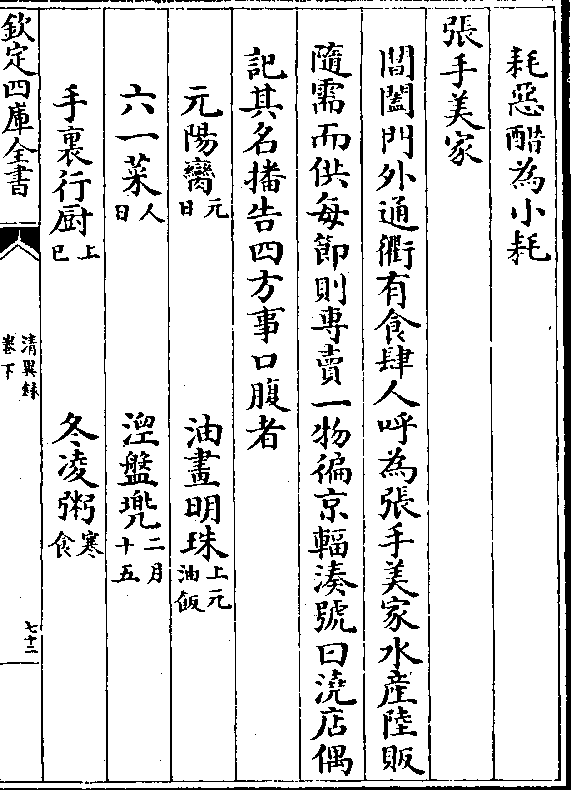 耗惡酷為小耗
張手美家
閶闔門外通衢有食肆人呼為張手美家水產陸販
隨需而供每節則専賣一物徧京輻湊號曰澆店偶
記其名播告四方事口腹者
元陽臠元日 油畫明珠上元油飯
六一菜人日 涅盤兜二月十五
手裏行厨上巳 冬凌粥寒食
欽定四庫全書
清異録
卷下
七十二